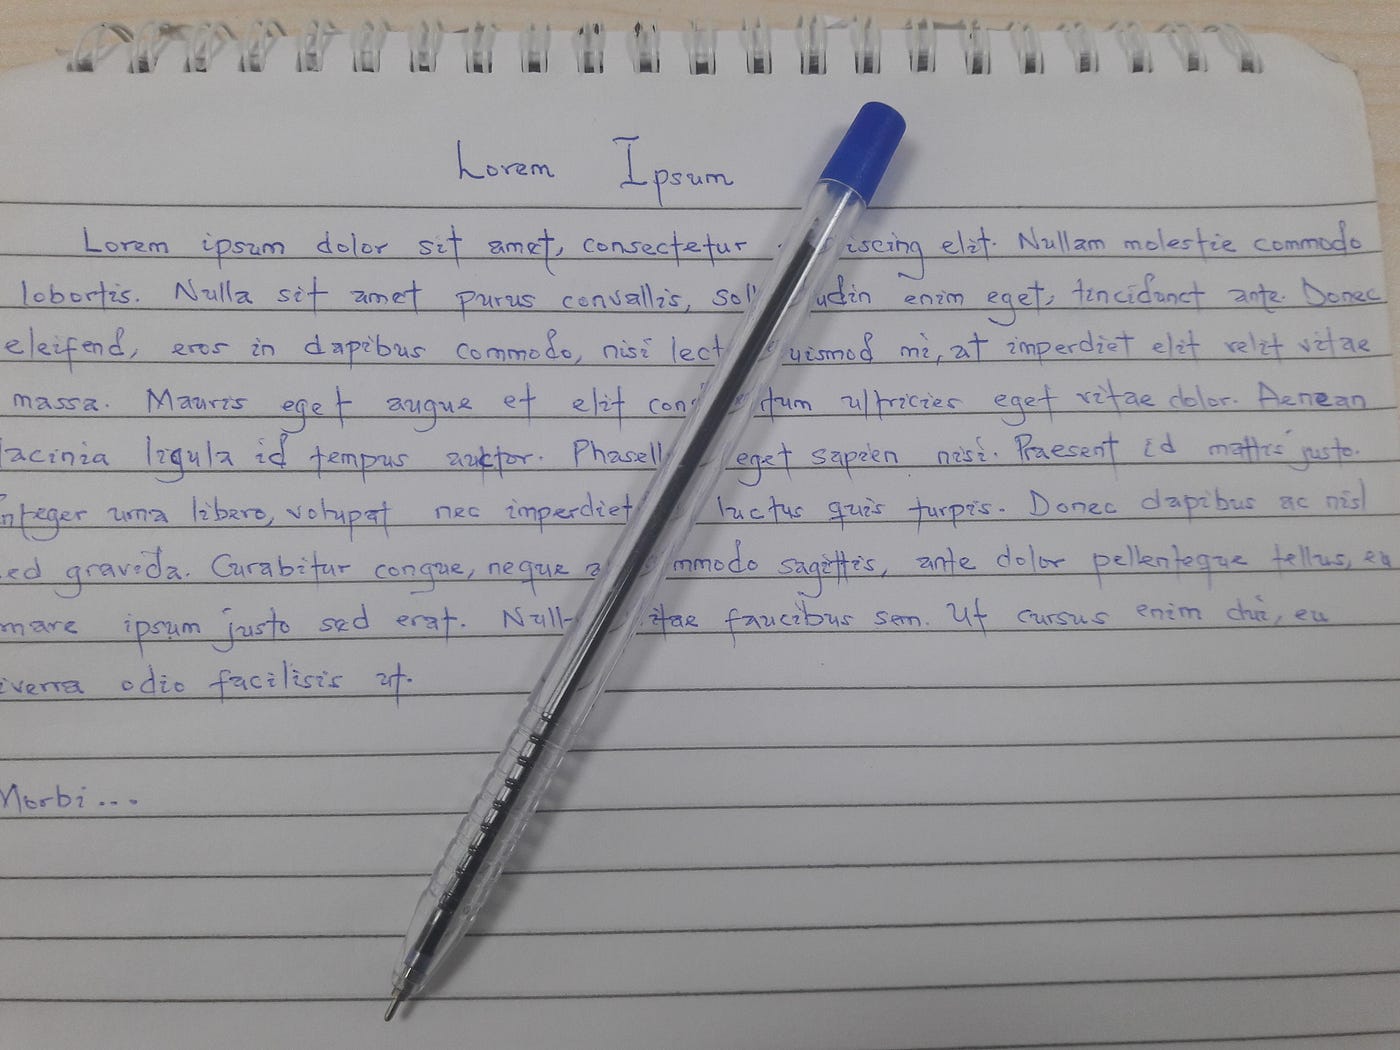 Lorem Ipsum
Lorem ipsum dolor sit amet, consectetur iscing elit. Nullam molestie commodo
lobortis. Nulla sit amet purus convallis, sol udin enim eget, tincidunct ante. Donec
eleifend, eros in dapibus commodo, nisi lect uismod mi, at imperdiet elit velit vitae
massa. Mauris eget augue et elit con tum ultricies eget vitae dolor. Aenean
lacinia ligula id tempus auctor. Phasell eget sapien nisi. Praesent id mattis justo.
nteger urna libero, volupat nec imperdiet luctus quis turpis. Donec dapibus ac nisl
ed gravida. Curabitur congue, neque mmodo sagittis, ante dolor pellenteque tellus, eu
rnare ipsum justo sed erat. Null itae faucibus sem. Ut cursus enim dui, eu
iverra odio facilisis ut.
Morbi...